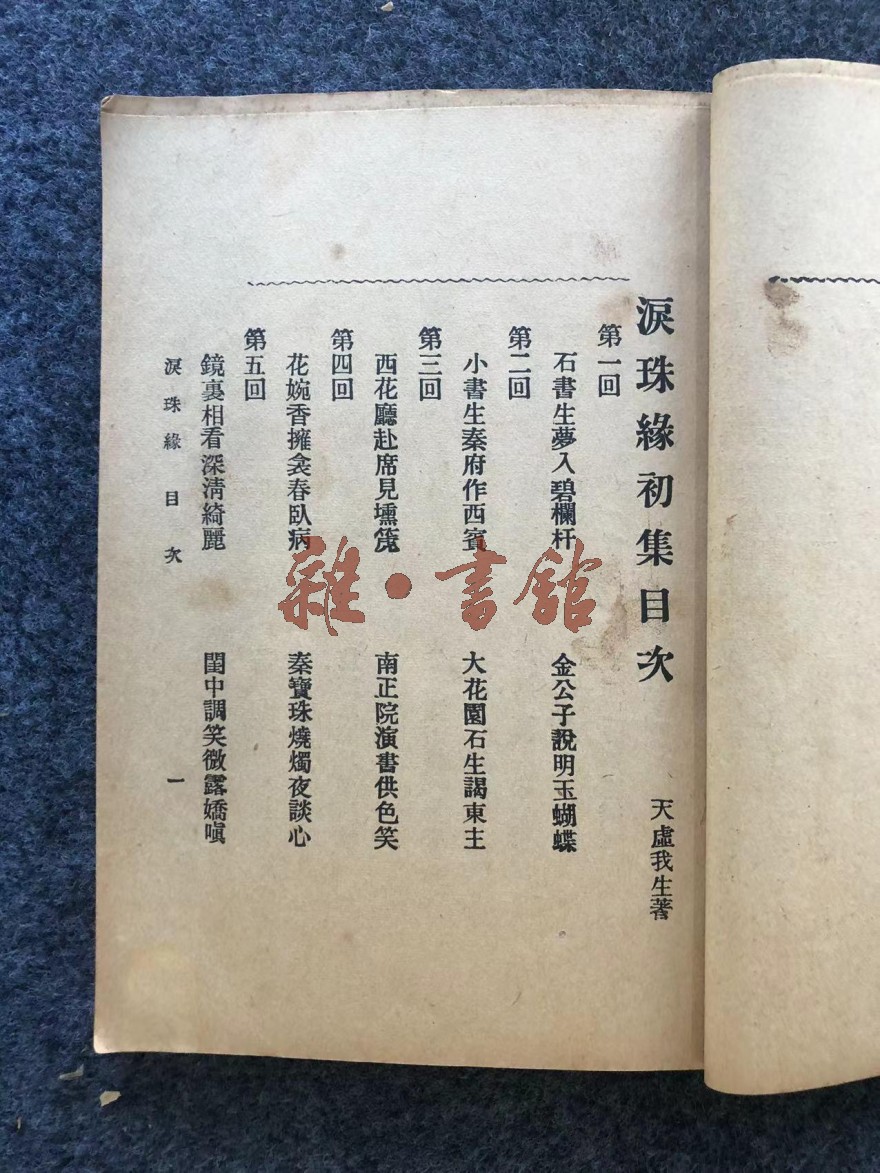 淚珠緣初集目次
天虛我生著
第一回
石書生夢入碧欄杆 金公子說明玉蝴蝶
第二回
小書生秦府作西賓 大花園石生謁東主
第三回
西花廳赴席見壎篪 南正院演書供色笑
第四回
花婉香擁衾春臥病 秦寶珠燒燭夜談心
第五回
鏡裏相看深清綺麗 閨中調笑微露嬌嗔
淚珠緣目次
一
雜·書館